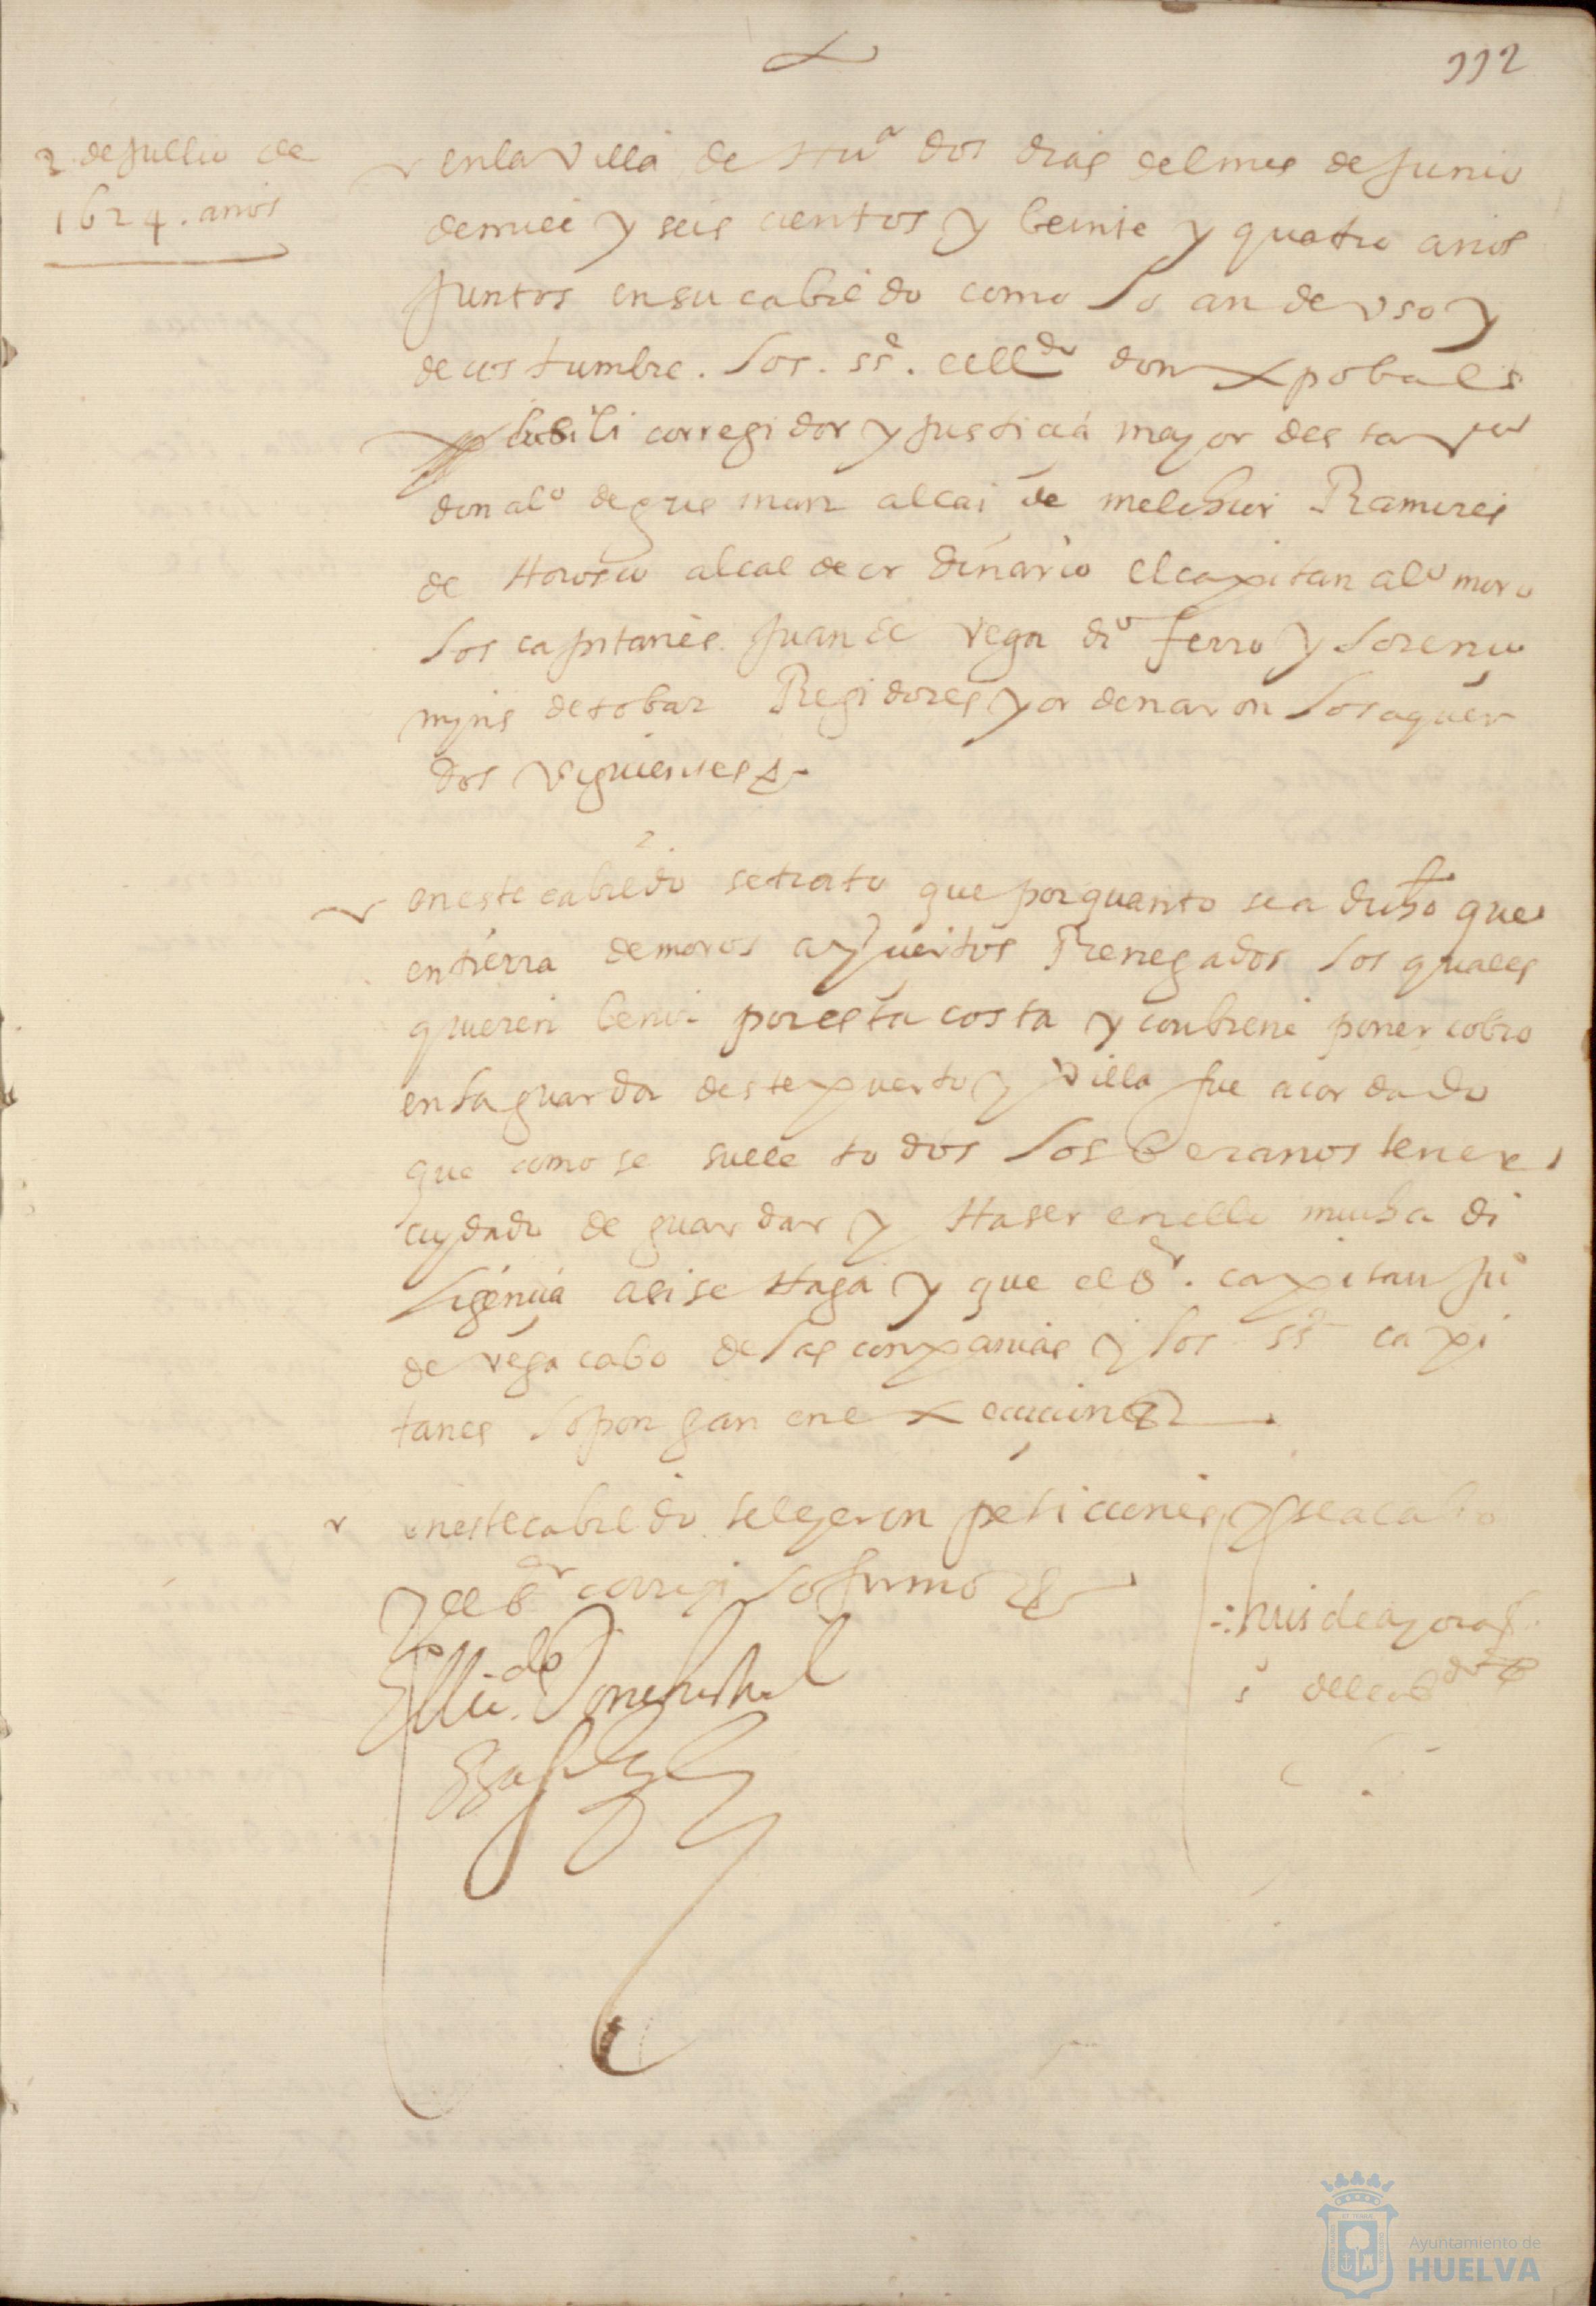 112
2 de jullio de
1624. años
en la villa de Hua dos dias del mes de junio
de mill y seis cientos y beinte y quatro años
juntos en su cabildo como lo an de uso y
de costumbre. los. ss.es el lldo don xpobal
corregidor y justicia mayor desta va
don alo de gusman alcaide melchor Ramires
de Horosco alcalde ordinario el capitan alo moro
los capitanes juan de vega do ferro y lorenço
mjns de tobar Regidores y ordenaron los aquer
dos siguientes
en este cabildo se trato que por quanto se a dicho que
en tierra de moros ay Renegados los quales
quieren benir por esta costa y conbiene poner cobro
en la guarda deste puerto y villa fue acordado
que como se suele todos los beranos tener
cuydado de guardar y Haser en ello mucha di
ligençia asi se Haga y que el sr. capitan ju
de vega cabo de las companias y los ss.es capi
tanes lo pongan en execuçion
en este cabildo se leyeron petiçiones y se acabo
y el sr corregir lo firmo
El licdo Don
luis de